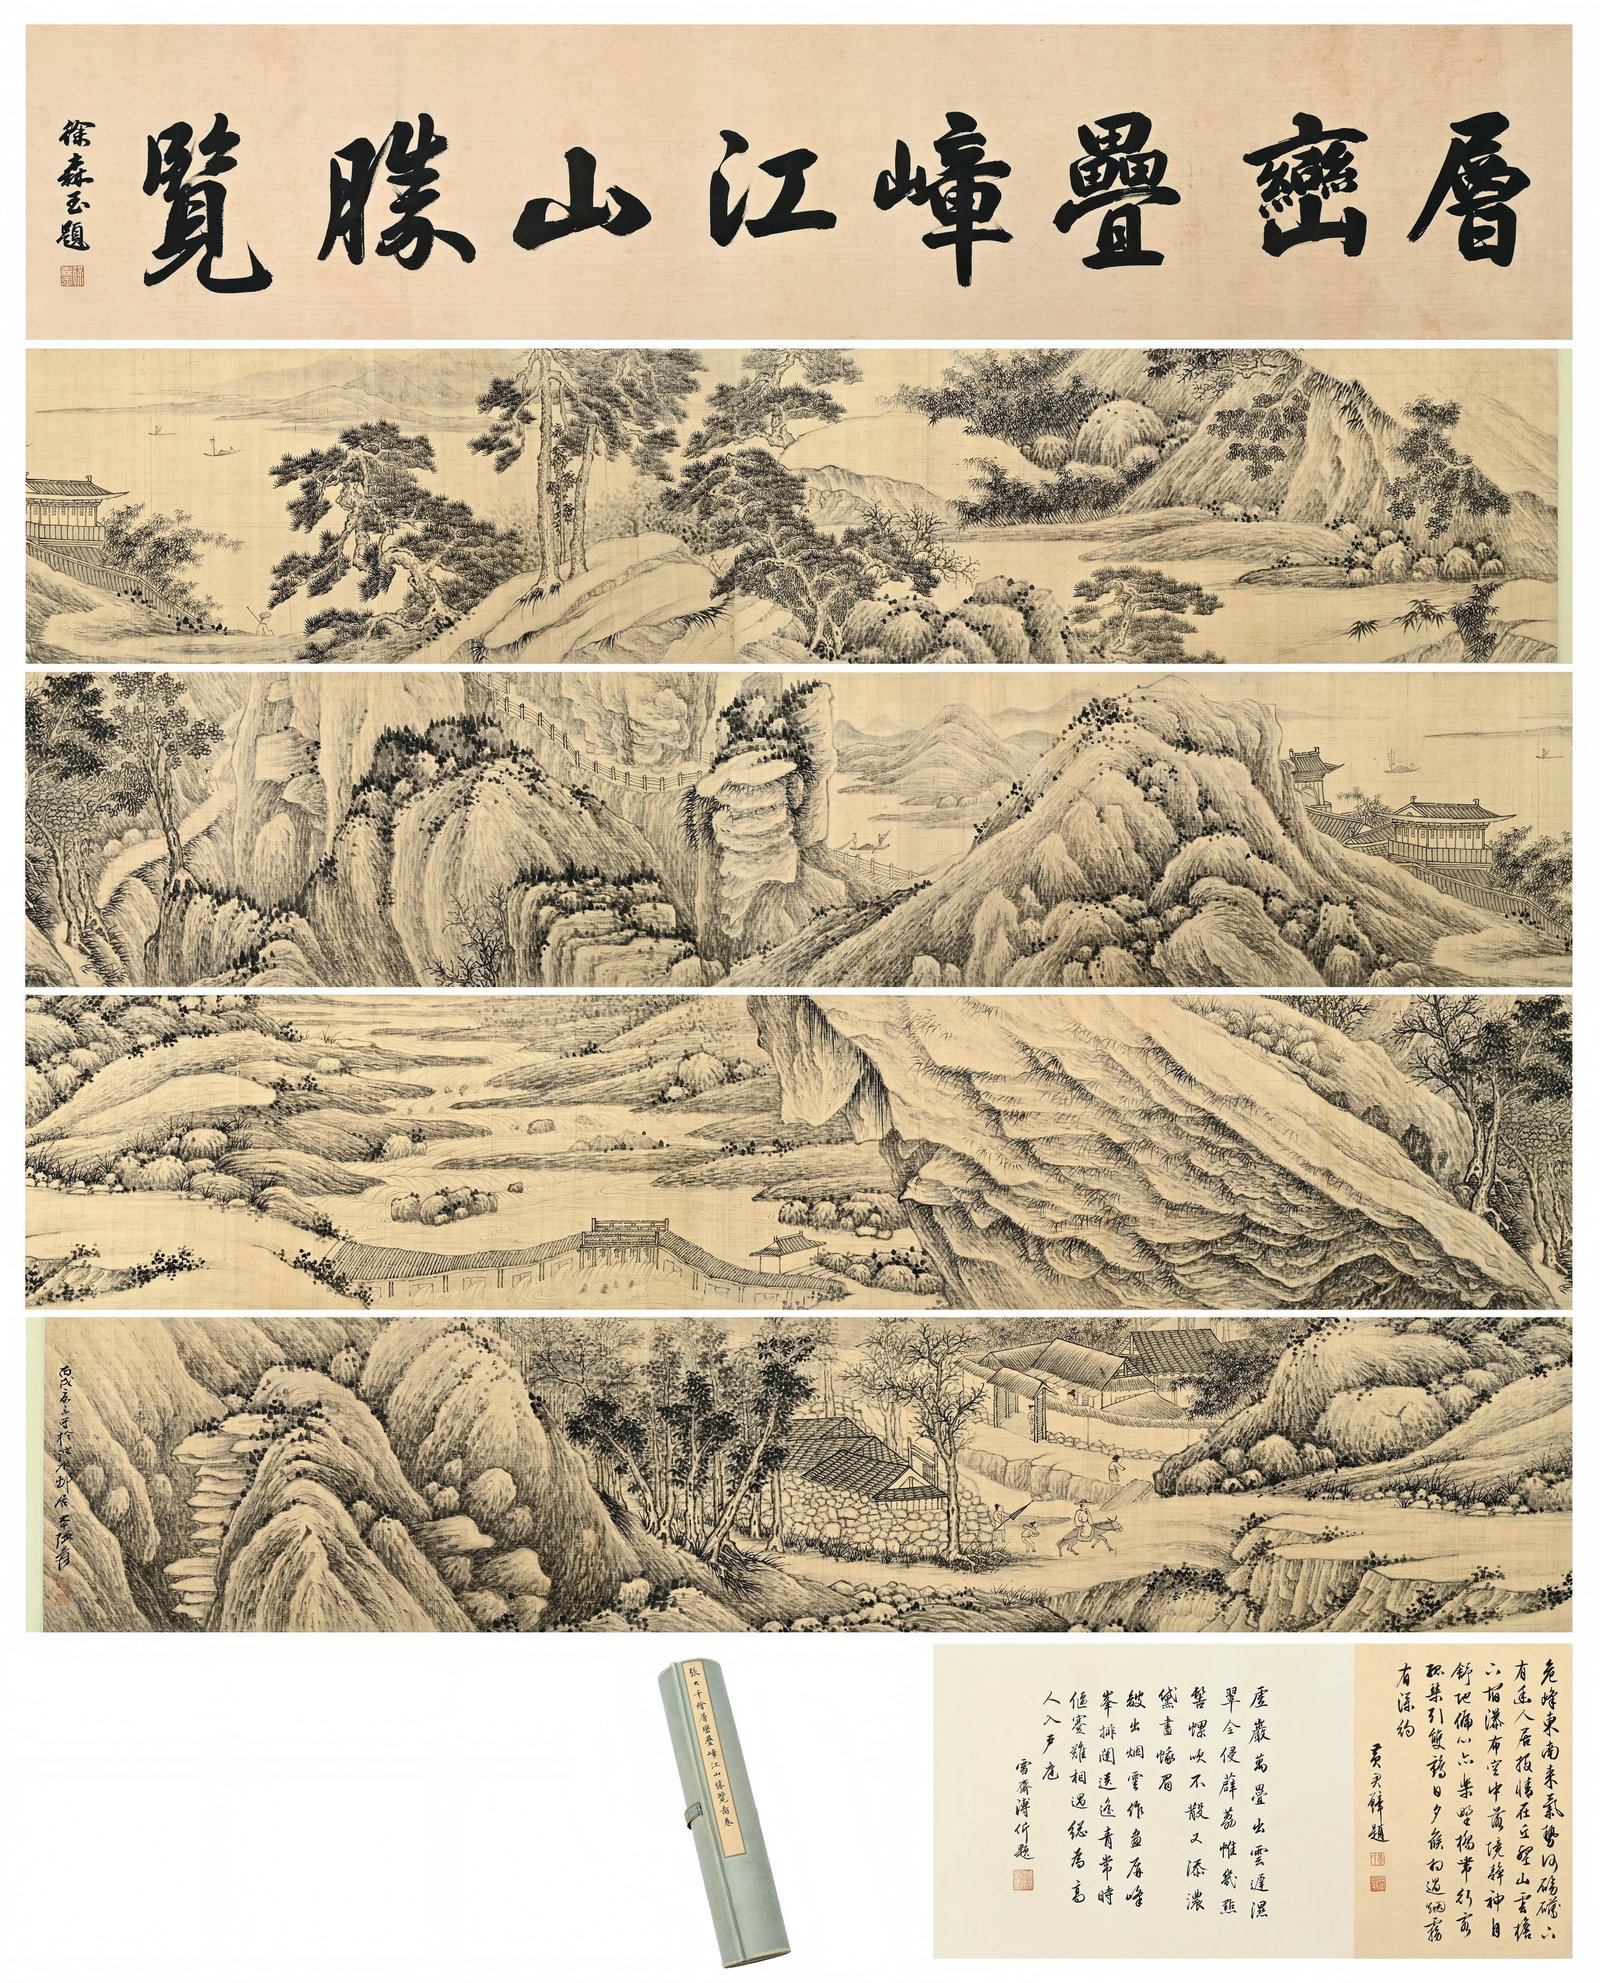 層巒疊嶂江山勝覽
徐森玉題
丙戌
居大千張爰
張大千繪層巒疊嶂江山勝覽圖卷
危峰東南來氣勢何磅礴下
有幽人居投情在丘壑山雲檐
下宿瀑布空中落境靜神自
舒地偏心亦樂野橋常行客
孤琴引雙鶴日夕候相過烟霧
有深約
黃君璧題
虛巖萬疊出雲遲濕
翠全侵薜荔帷幾點
髻螺吹不散又添濃
黛畫蛾眉
皴出烟雲作畫屏峰
峯排闥送遙青常時
偃蹇難相遇總為高
人入戶庭
雪齋溥伒題